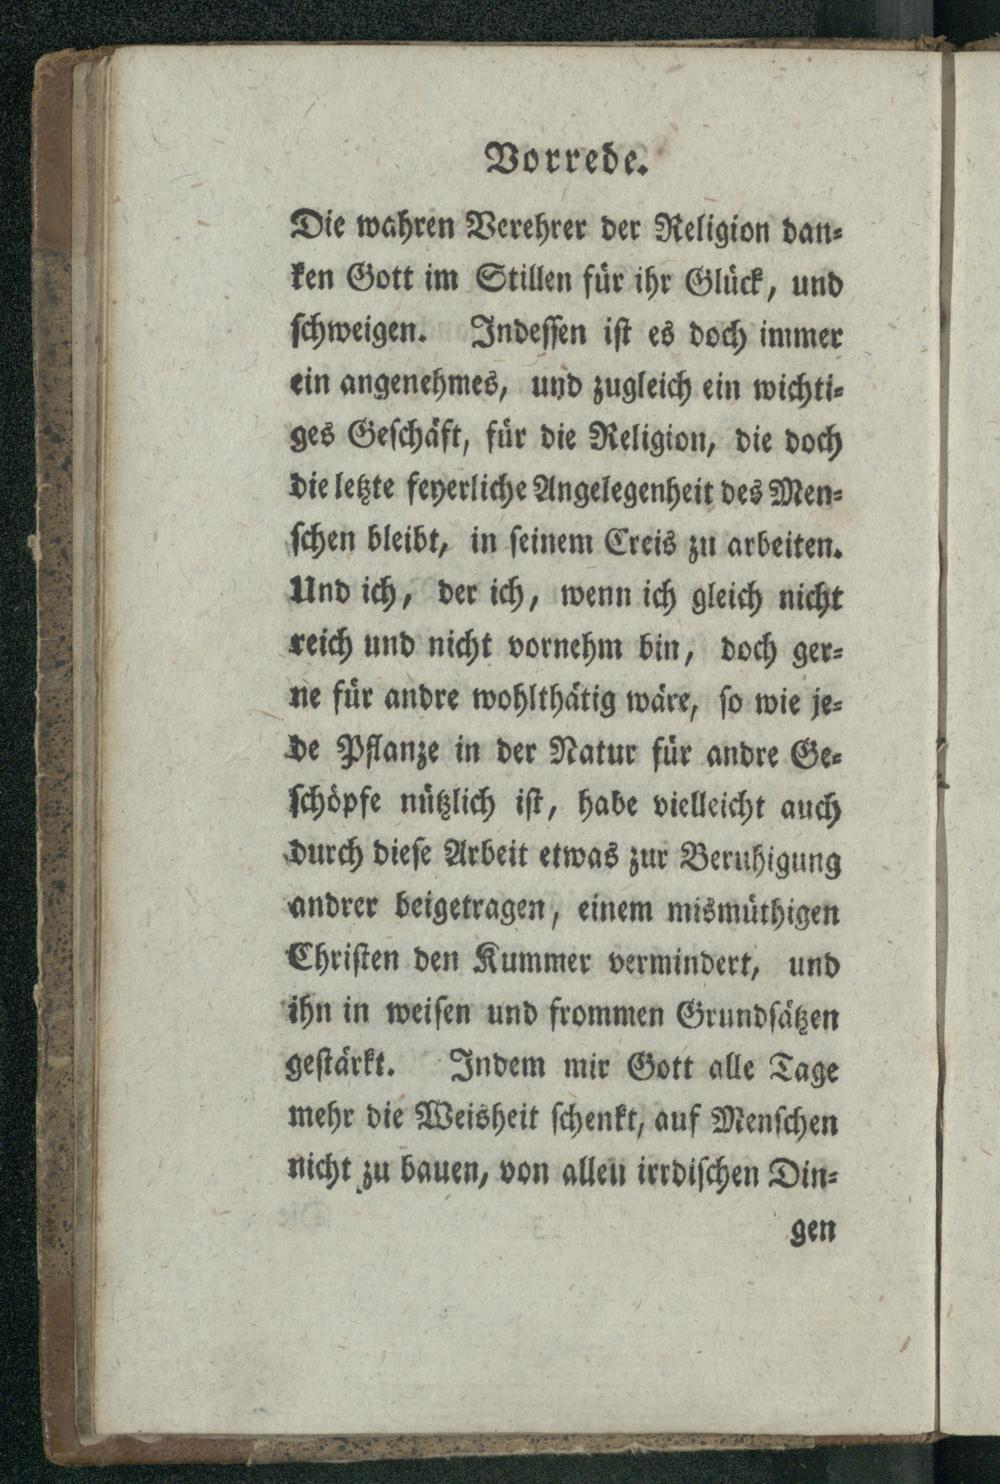 Vorrede.
Die wahren Verehrer der Religion dan-
ken Gott im Stillen für ihr Glück, und
schweigen. Indessen ist es doch immer
ein angenehmes, und zugleich ein wichti-
ges Geschäft, für die Religion, die doch
die letzte feyerliche Angelegenheit des Men-
schen bleibt, in seinem Creis zu arbeiten.
Und ich, der ich, wenn ich gleich nicht
reich und nicht vornehm bin, doch ger-
ne für andre wohlthätig wäre, so wie je-
de Pflanze in der Natur für andre Ge-
schöpfe nützlich ist, habe vielleicht auch
durch diese Arbeit etwas zur Beruhigung
andrer beigetragen, einem mismüthigen
Christen den Kummer vermindert, und
ihn in weisen und frommen Grundsätzen
gestärkt. Indem mir Gott alle Tage
mehr die Weisheit schenkt, auf Menschen
nicht zu bauen, von allen irrdischen Din-
gen